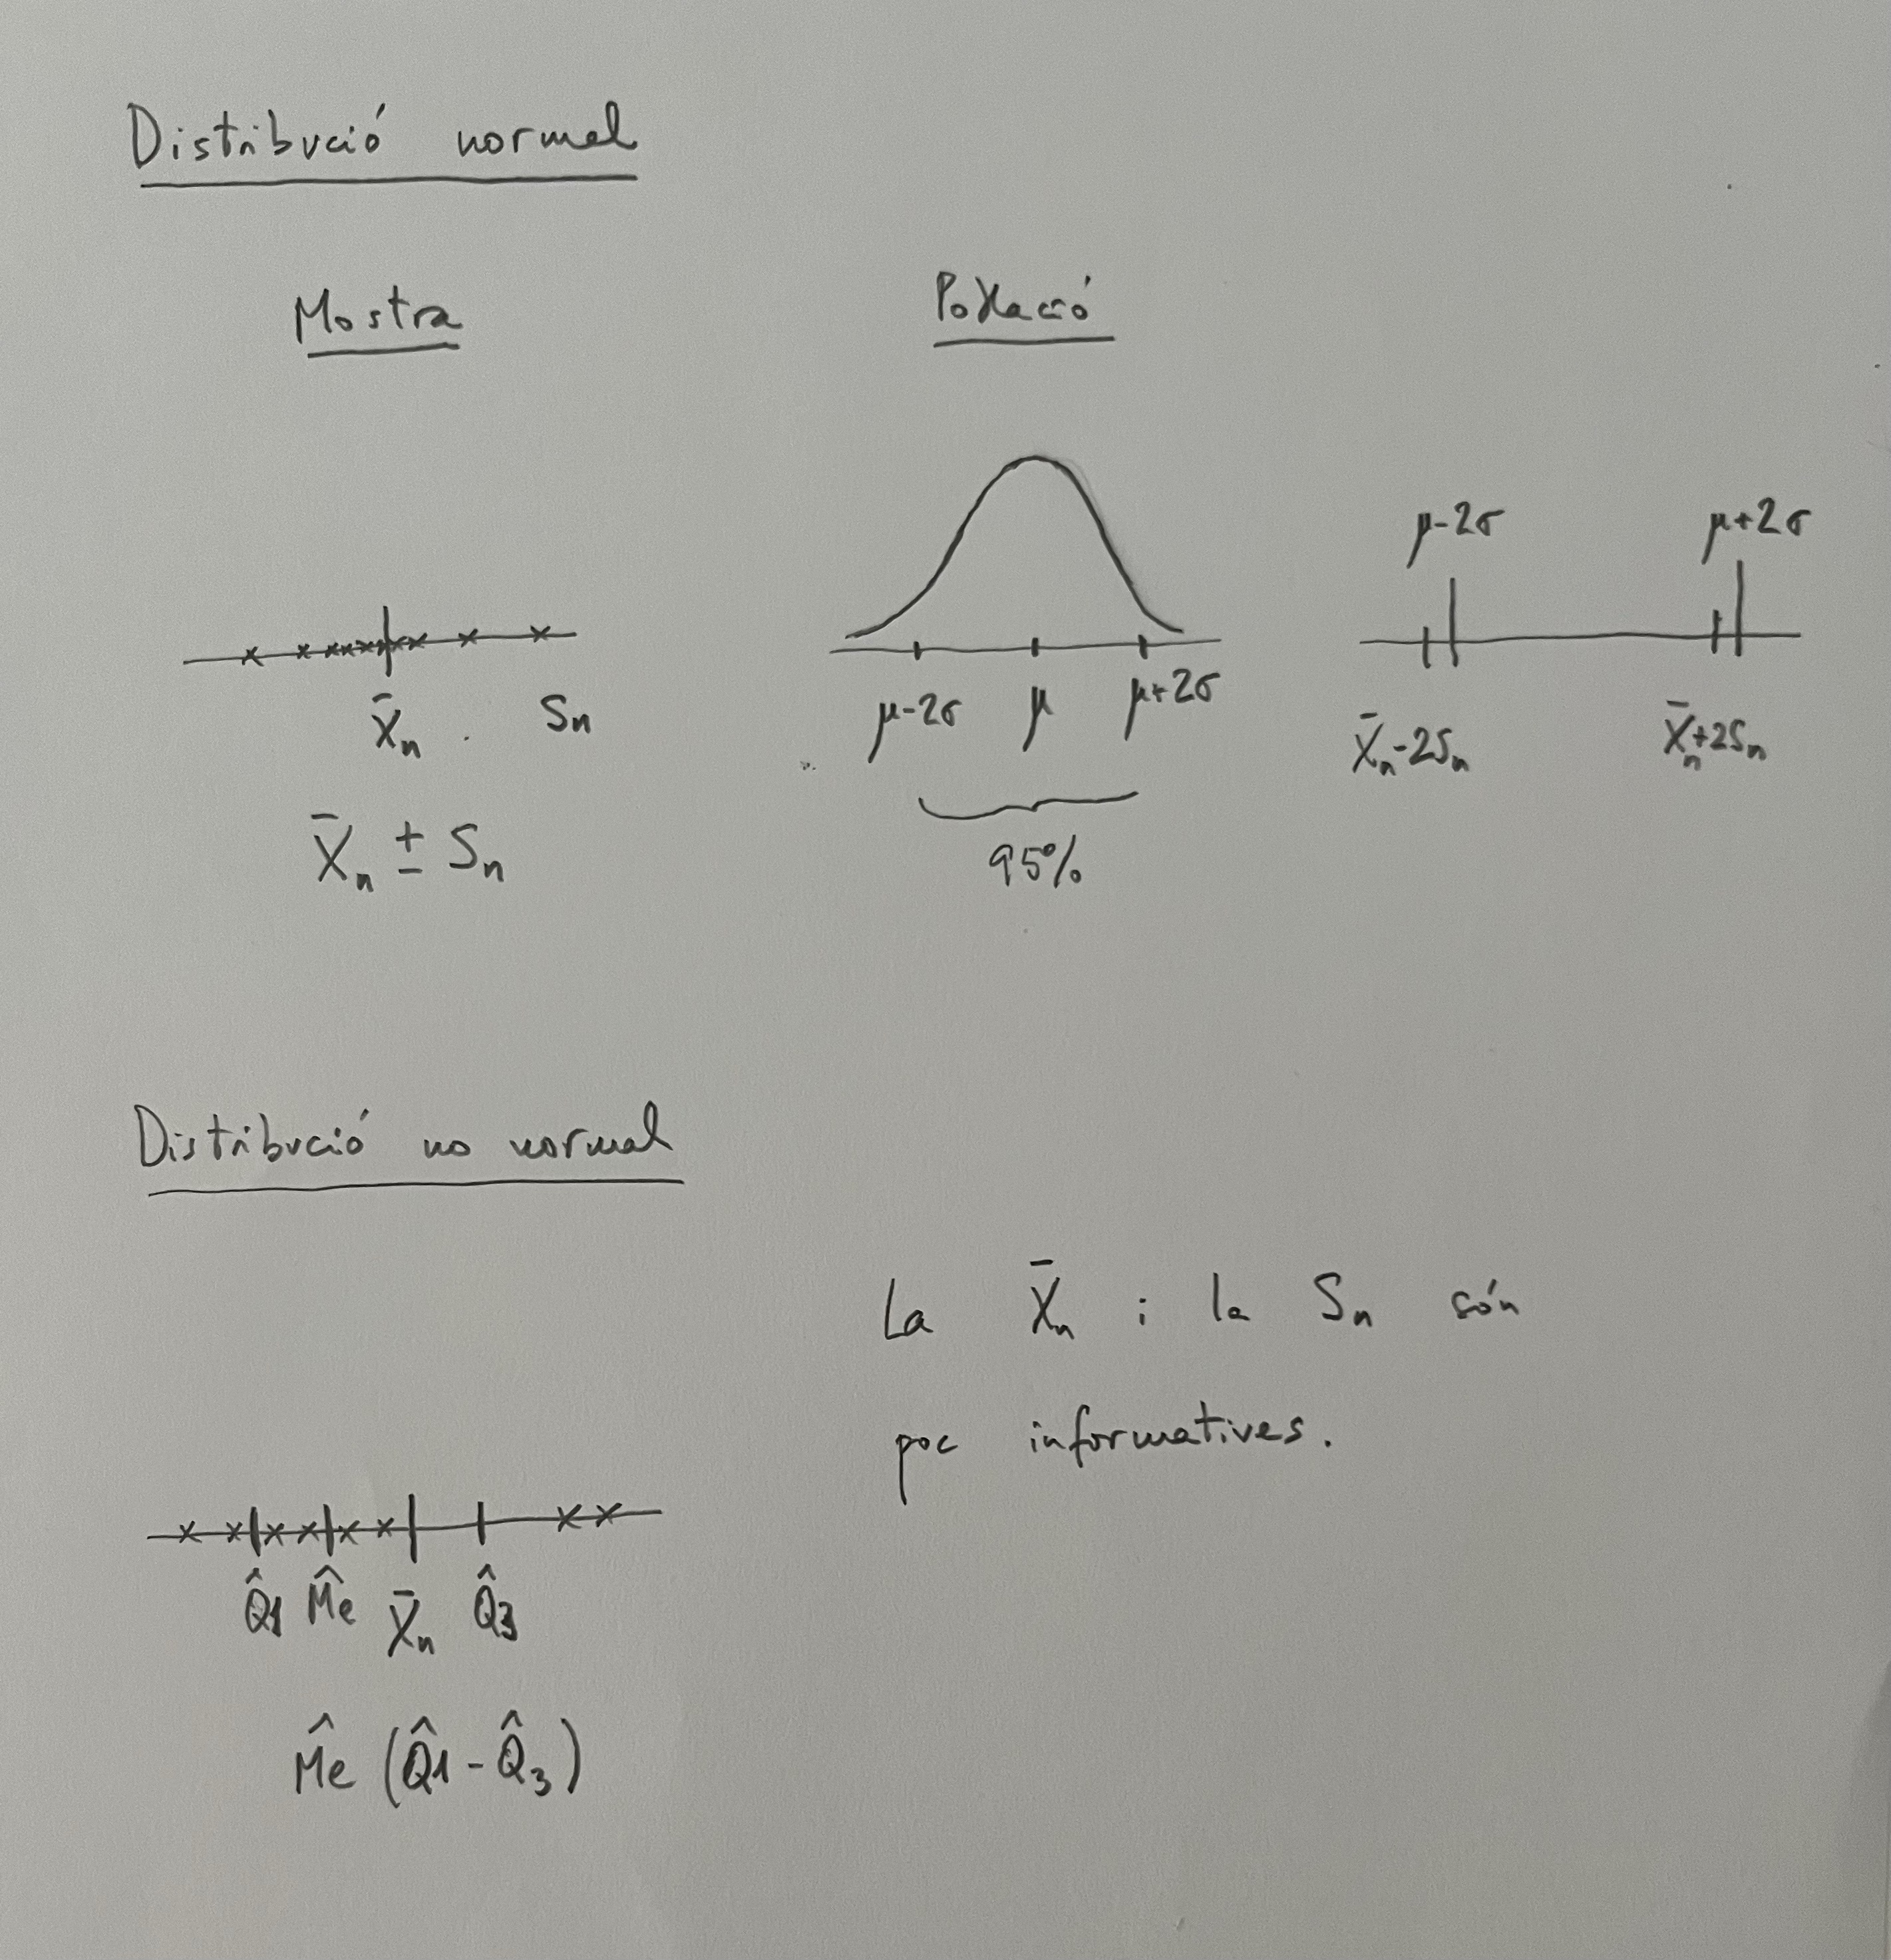 Distribució normal
Mostra
Població
μ-2σ μ+2σ
X̄n Sn
μ-2σ μ μ+2σ
X̄n-2Sn X̄n+2Sn
X̄n ± Sn
95%
Distribució no normal
La X̄n i la Sn són
poc informatives.
Q̂1 M̂e X̄n Q̂3
M̂e (Q̂1 - Q̂3)